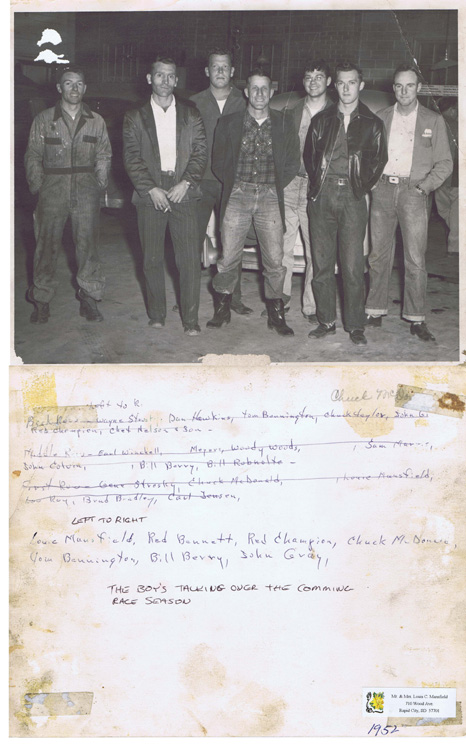 Left to R.
Chuck McD
Back Row - Wayne Stai Don Hawkins, Tom Bennington, Chuck Taylor, John G
Red Champien, Chet Nelson & Son -
Middle Row - Earl Wendell, Meyers, Woody Woods, , Sam Morris,
John , , Bill Berry, Bill
First Row - Gene , Chuck McDonald, , Louie Mansfield,
Ray, Brad Bradley, Carl Jensen,
LEFT TO RIGHT
Louie Mansfield, Red Bennett, Red Champien, Chuck McDonald,
Tom Bennington, Bill Berry, John Gray,
THE BOY'S TALKING OVER THE COMMING
RACE SEASON
Mr. & Mrs. Louis C. Mansfield
Wood Ave
Rapid City, SD 57701
1952